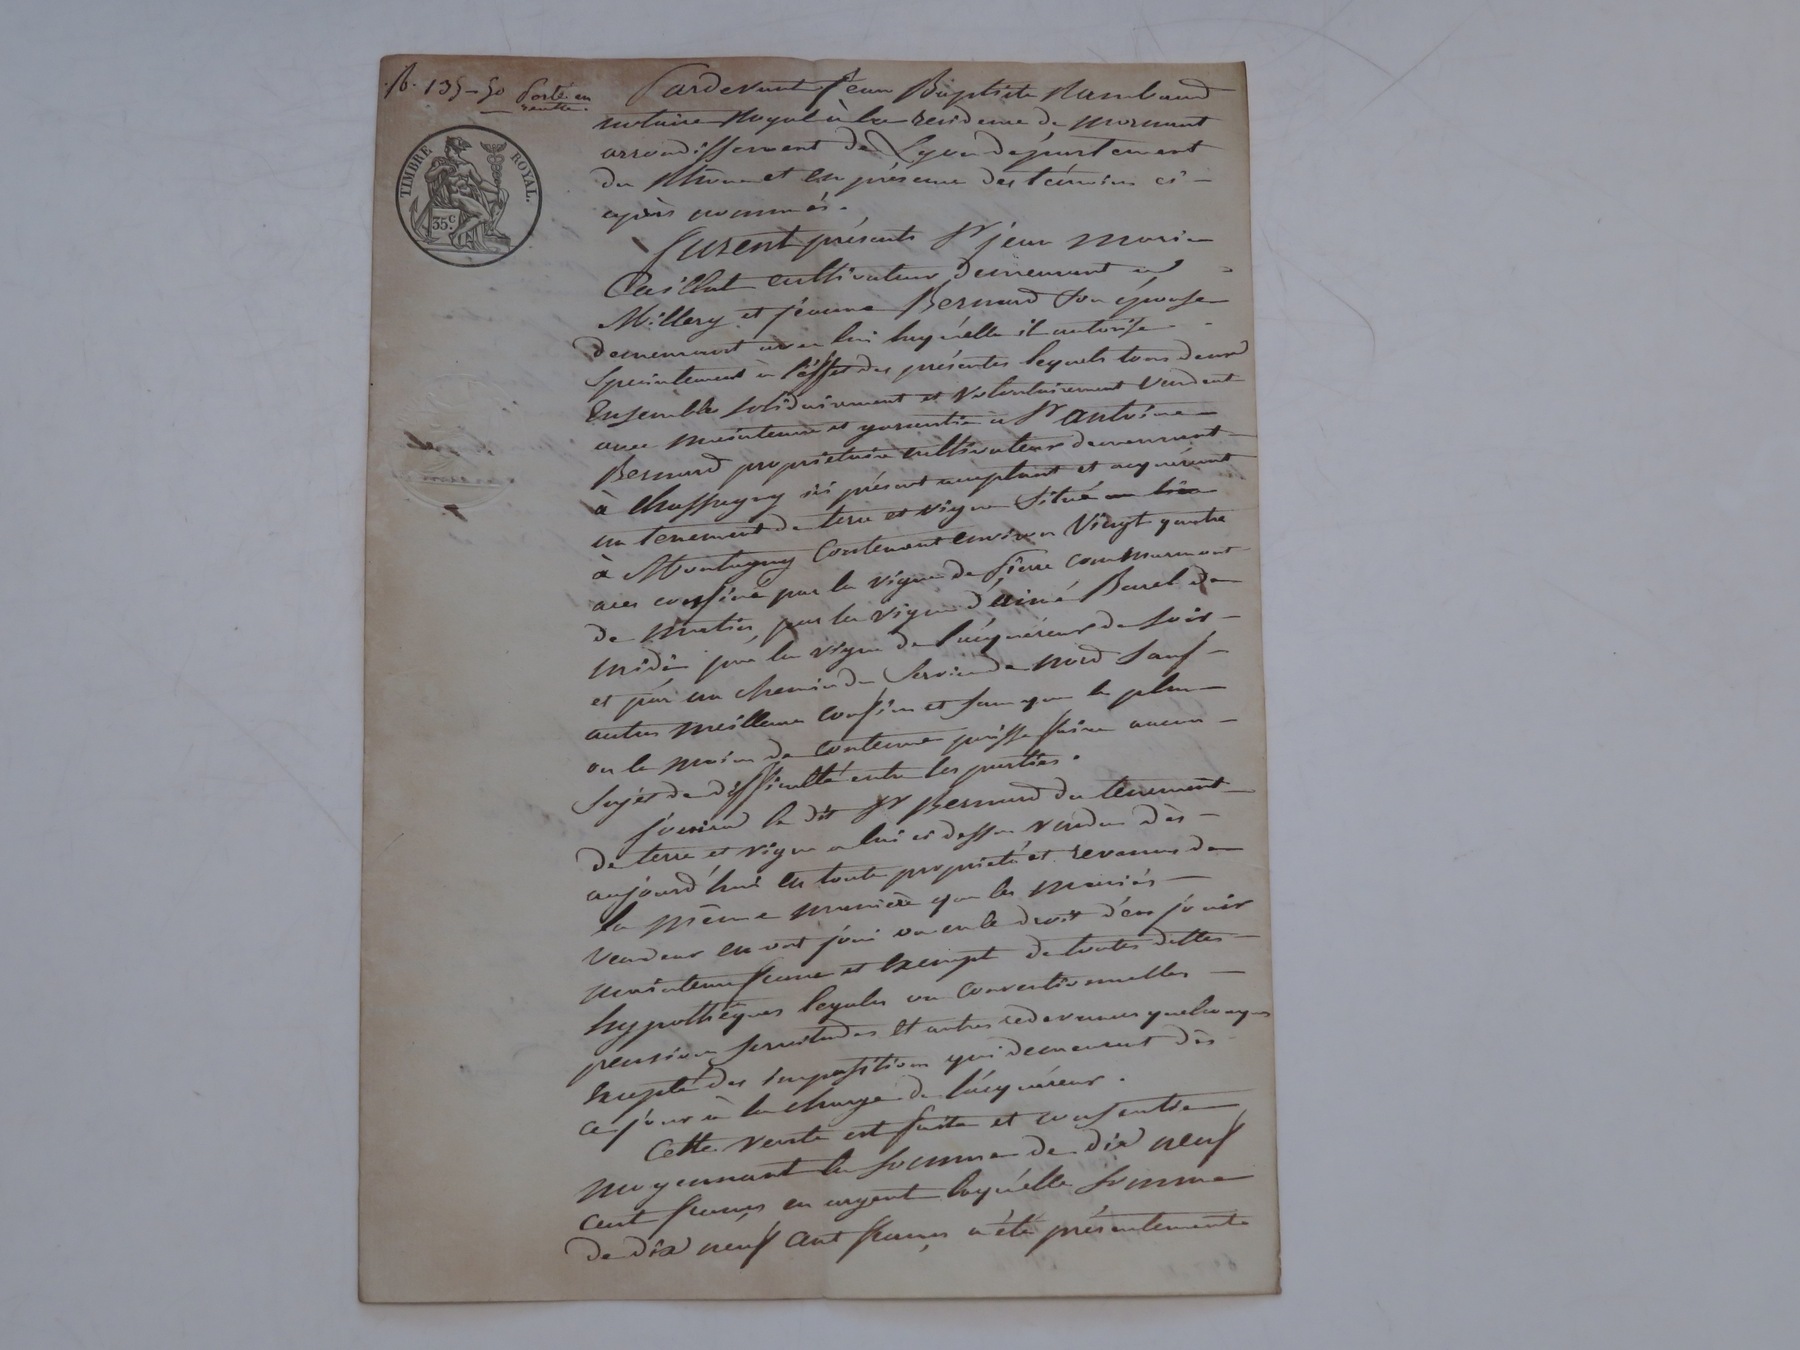 135-50 Porté en
vente.
TIMBRE ROYAL.
35.c
Pardevant Jean Baptiste Rambaud
notaire Royal à la residence de mornant
arrondissement de Lyon département
du Rhône et en présence des témoins ci-
après nommés.
furent présents Sr jean Marie
Caillat cultivateur demeurant à
Millery et jeanne Bernard son épouse
demeurant avec lui laquelle il autorise
specialement à l'effet des présentes lequels tous deux
Ensemble solidairement et volontairement vendent
avec maintenue et garantie à Sr antoine
Bernard propriétaire cultivateur demeurant
à Chassagny ici présent acceptant et acquérant
un tenement de terre et vigne Situé
à Montagny Contenant environ Vingt quatre
ares confiné par la vigne de Pierre
de matin, par la vigne d'aimé Burel de
midi, par la vigne de l'acquéreur de soir
et par un chemin de Service de nord Sauf
autres meilleurs confins et sans que le plus
ou le moins de contenue puisse faire aucun
sujet de difficulté entre les parties.
jouira le dit Sr Bernard du tenement
de terre et vigne à lui ci dessus vendus dès
aujourd'hui en toute propriété et revenus de
la même manière que les mariés
vendeur en ont joui ou eu le droit d'en jouir
maintenu franc et exempt de toutes dettes
hypothèques legales ou conventionnelles
pensions servitudes et autres redevances quelconques
excepté des impositions qui demeurent dès
ce jour à la charge de l'acquéreur.
Cette vente est faite et consentie
moyennant la somme de dix neuf
cent francs en argent laquelle somme
de dix neuf cent francs a été présentement